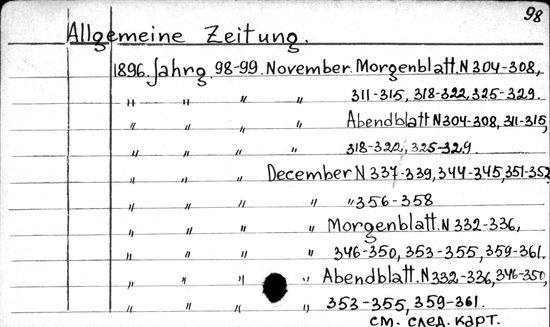 98
Allgemeine Zeitung.
1896. Jahrg. 98-99. November. Morgenblatt. N 304-308,
" " " " 311-315, 318-322, 325-329.
" " " Abendblatt N 304-308, 311-315,
" " " " 318-322, 325-329.
" " " December N 337-339, 344-345, 351-352
" " " " 356-358
" " " " Morgenblatt. N 332-336,
" " " " 346-350, 353-355, 359-361.
" " " " Abendblatt. N 332-336, 346-350,
" " " " 353-355, 359-361.
см. след. карт.